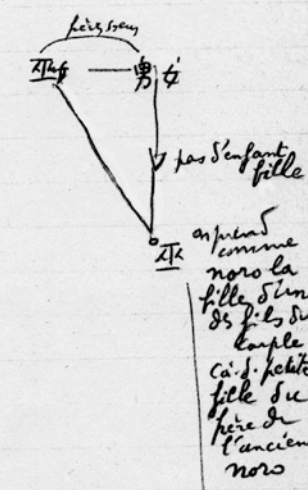 frère soeur
巫女 男 女
pas d'enfant
fille
巫
on prend
comme
noro la
fille d'un
ds fils du
couple
cà-d. petite
fille du
frère de
l'ancien
noro